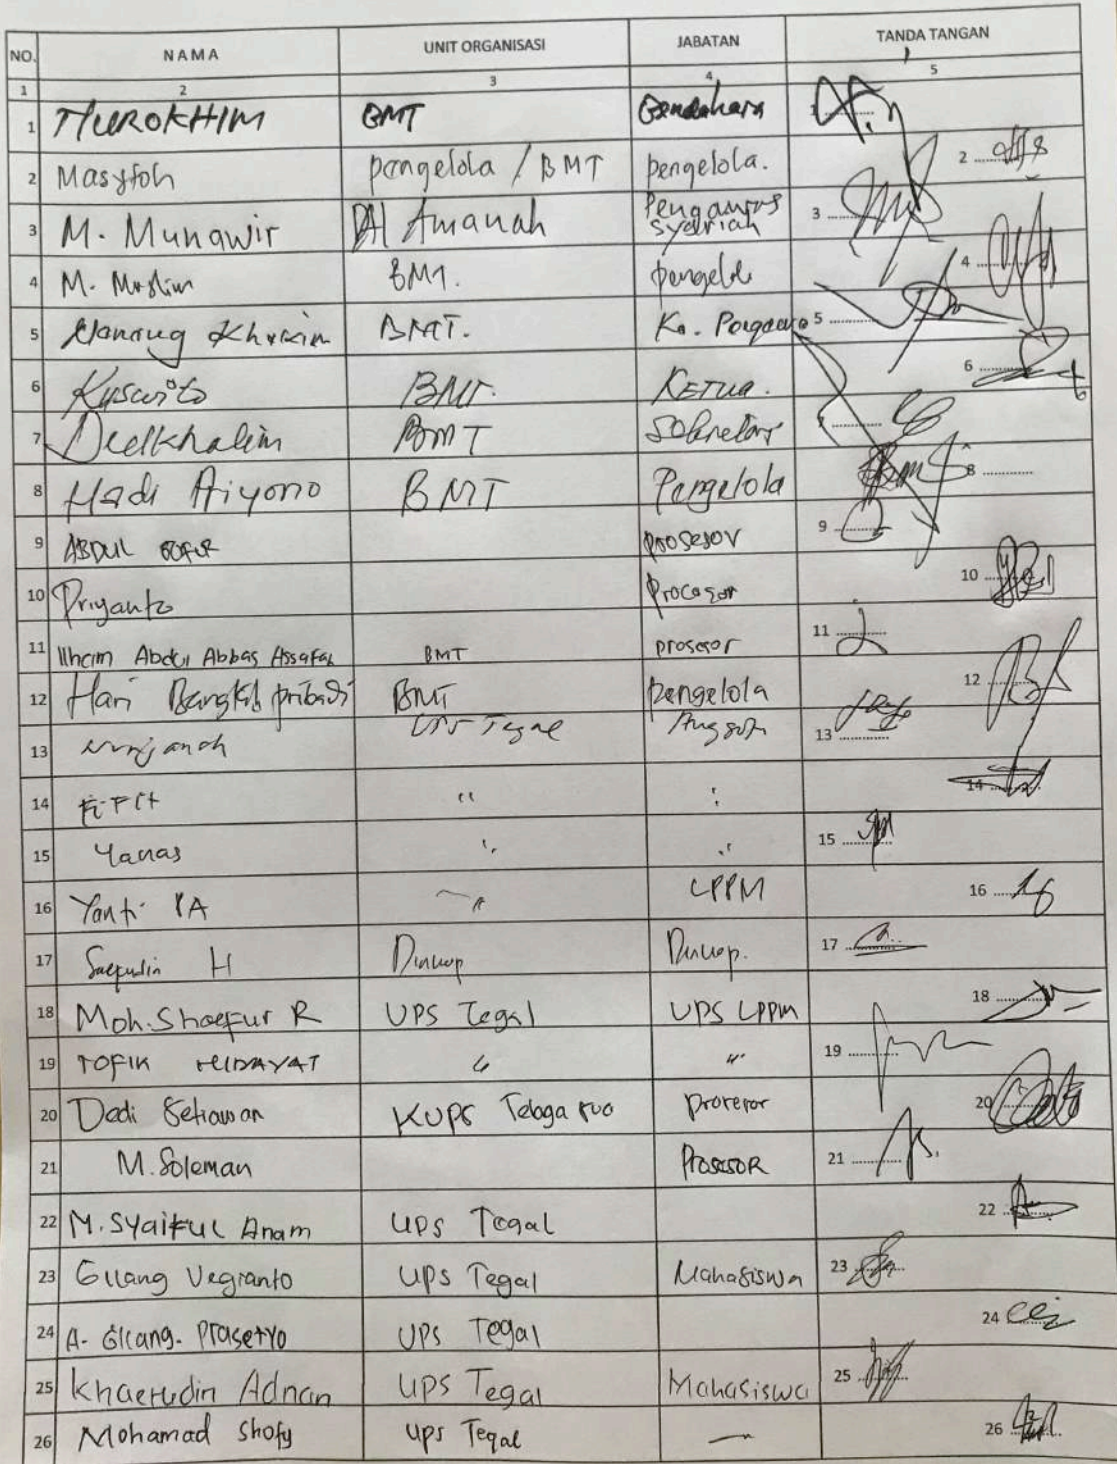 NO. NAMA UNIT ORGANISASI JABATAN TANDA TANGAN
1 2 3 4 5
1 NUROKHIM BMT Bendahara 1
2 Masyfoh pengelola / BMT pengelola. 2
3 M. Munawir Al Amanah Pengawas syariah 3
4 M. Muslim BMT. 4
5 BMT. Ka. 5
6 Kuswito BMT. KETUA. 6
7 BMT 7
8 Hadi Ariyono BMT Pengelola 8
9 ABDUL prosesor 9
10 Priyanto Procesor 10
11 Ilham Abdul Abbas Assafah BMT prosesor 11
12 Hari Bangkit pribadi BMT pengelola 12
13 UPS Tegal 13
14 " " 14
15 Yanas " " 15
16 Yanti PA " LPPM 16
17 Saefudin H Dinkop Dinkop. 17
18 Moh. Shaefur R UPS Tegal UPS LPPM 18
19 TOFIK HIDAYAT " " 19
20 Dedi Setiawan KUPS Telaga Prosesor 20
21 M. Soleman PROSESOR 21
22 M. SYAIFUL Anam UPS Tegal 22
23 Gilang Vegianto UPS Tegal Mahasiswa 23
24 A. Gilang. Prasetyo UPS Tegal 24
25 Khaerudin Adnan UPS Tegal Mahasiswa 25
26 Mohamad Shofy UPS Tegal — 26